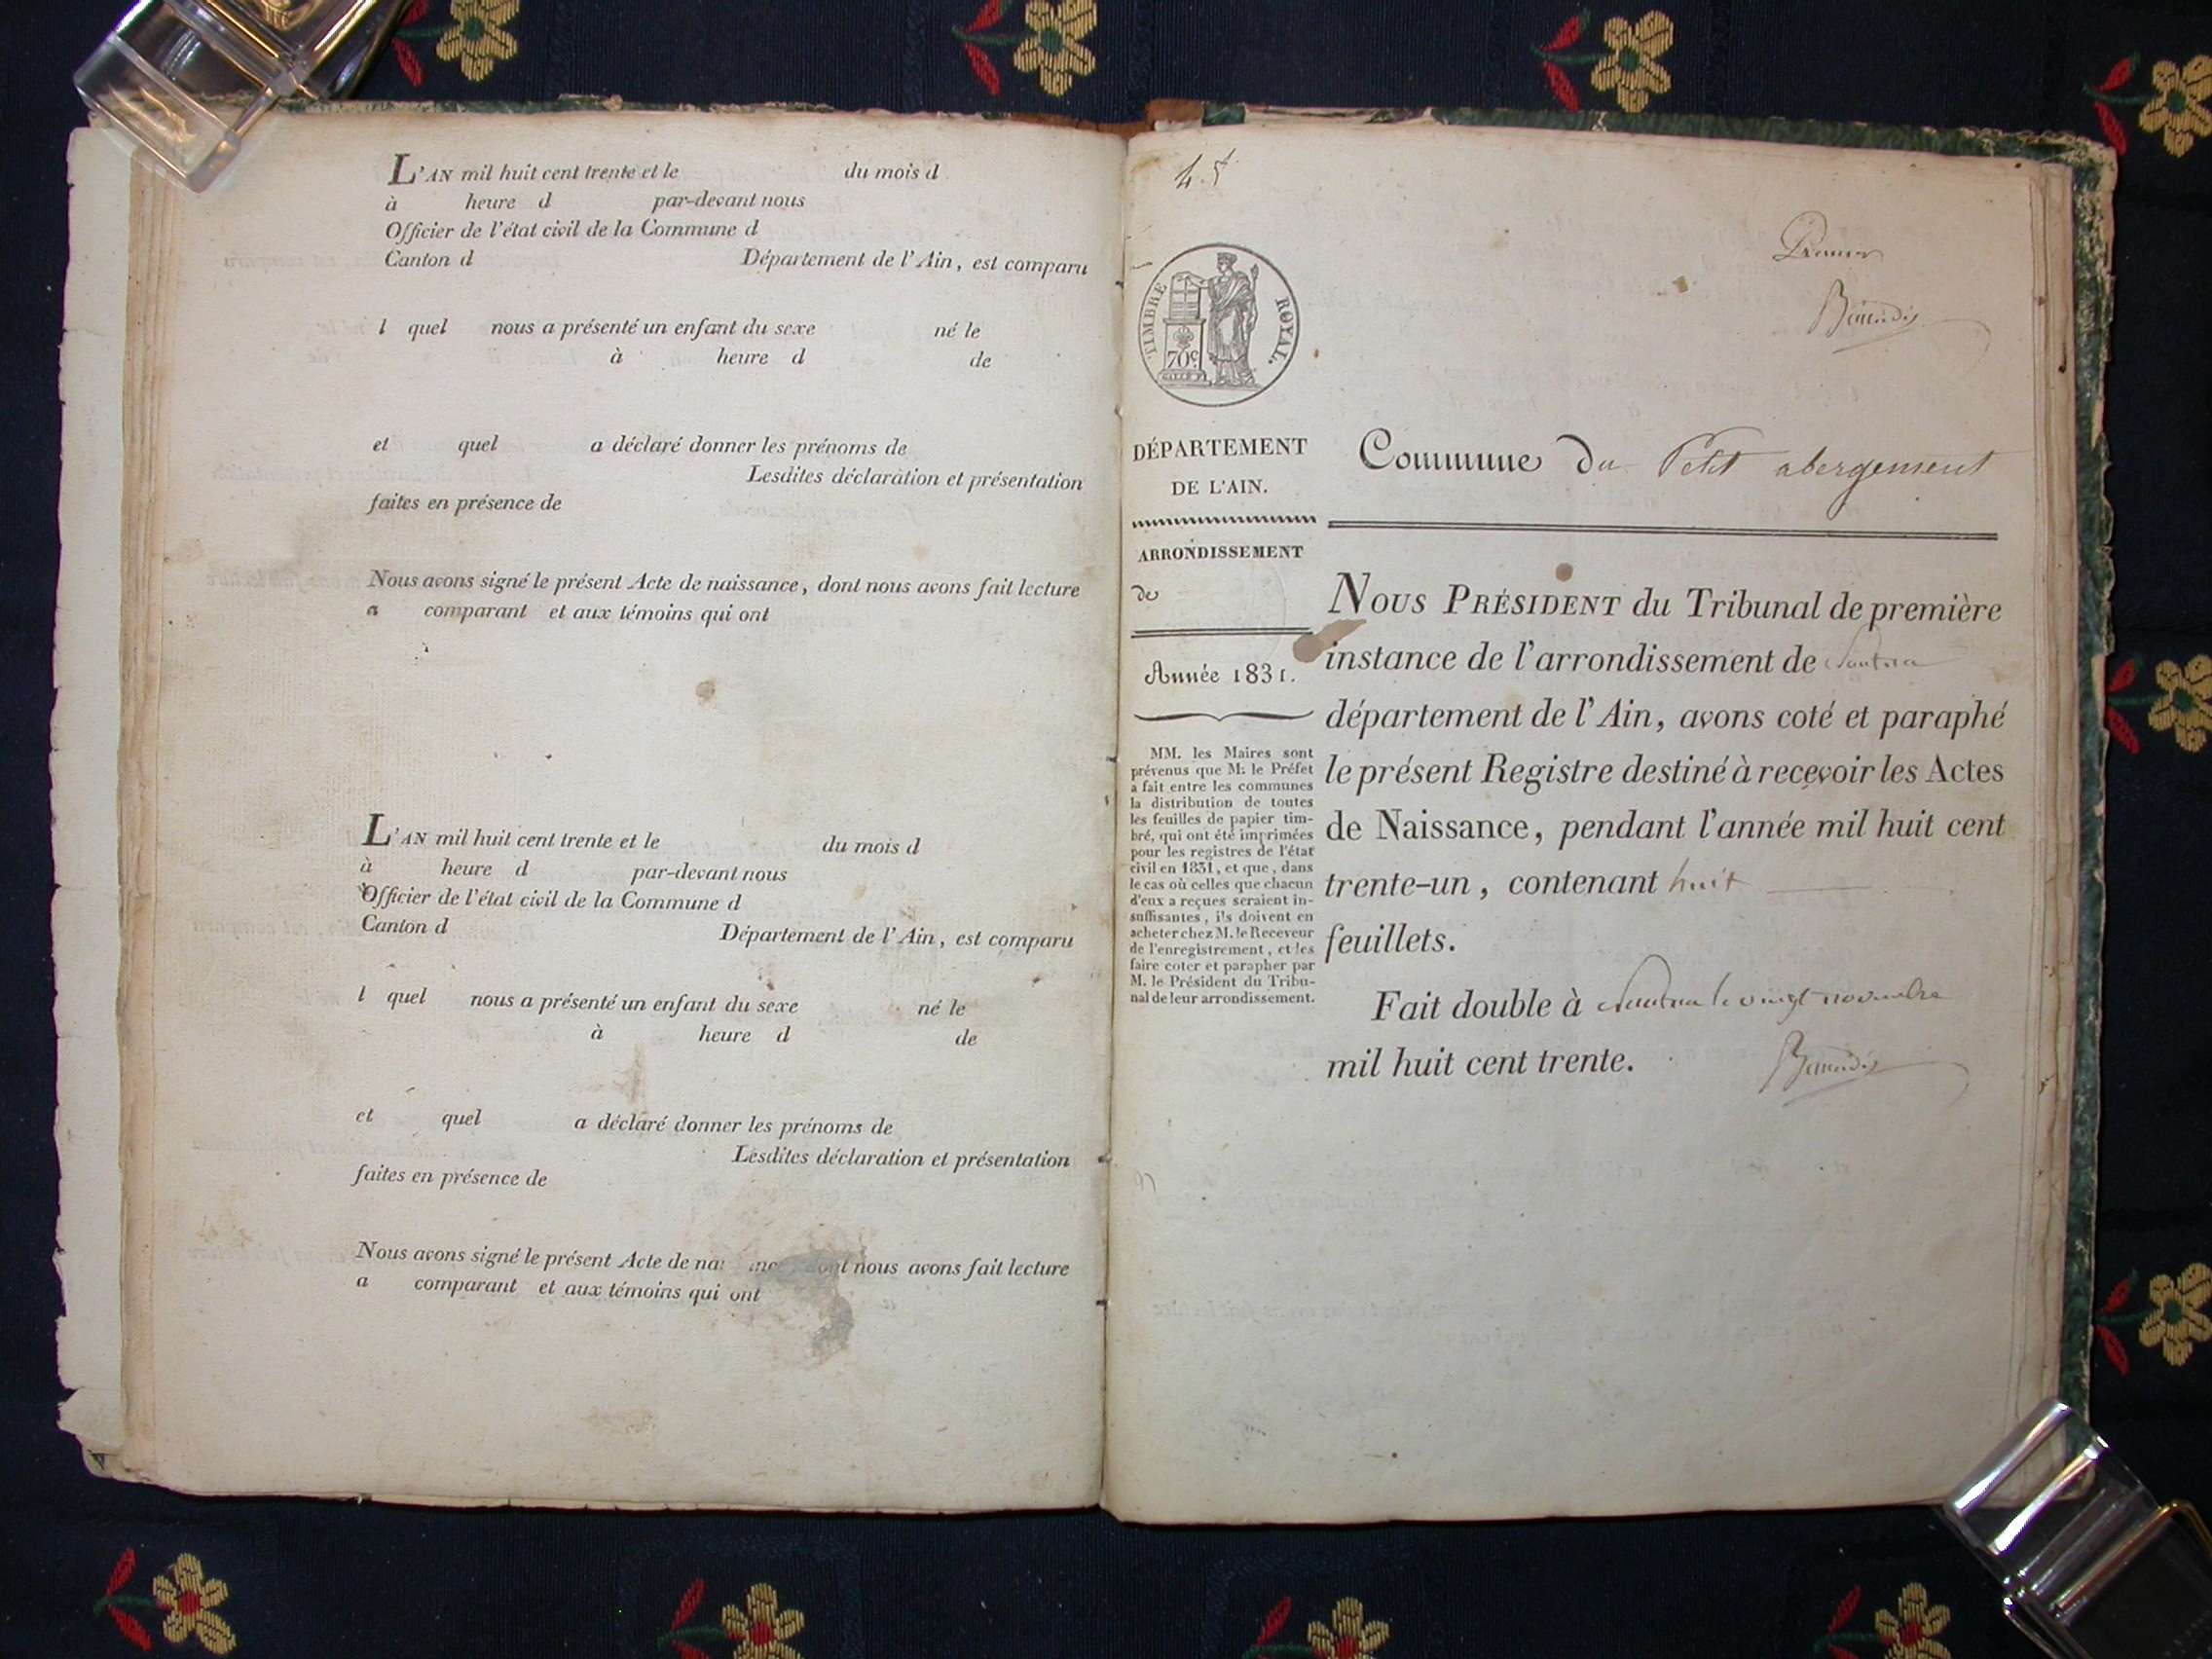 L'AN mil huit cent trente et le du mois d
à heure d par-devant nous
Officier de l'état civil de la Commune d
Canton d Département de l'Ain, est comparu
l quel nous a présenté un enfant du sexe né le
à heure d de
et quel a déclaré donner les prénoms de
Lesdites déclaration et présentation
faites en présence de
Nous avons signé le présent Acte de naissance, dont nous avons fait lecture
a comparant et aux témoins qui ont
L'AN mil huit cent trente et le du mois d
à heure d par-devant nous
Officier de l'état civil de la Commune d
Canton d Département de l'Ain, est comparu
l quel nous a présenté un enfant du sexe né le
à heure d de
et quel a déclaré donner les prénoms de
Lesdites déclaration et présentation
faites en présence de
Nous avons signé le présent Acte de nais dont nous avons fait lecture
a comparant et aux témoins qui ont
TIMBRE ROYAL.
70c.
DÉPARTEMENT
DE L'AIN.
ARRONDISSEMENT
de
Année 1831.
MM. les Maires sont
prévenus que M. le Préfet
a fait entre les communes
la distribution de toutes
les feuilles de papier tim-
bré, qui ont été imprimées
pour les registres de l'état
civil en 1831, et que, dans
le cas où celles que chacun
d'eux a reçues seraient in-
suffisantes, ils doivent en
acheter chez M. le Receveur
de l'enregistrement, et les
faire coter et parapher par
M. le Président du Tribu-
nal de leur arrondissement.
Premier
Commune du Petit abergement
NOUS PRÉSIDENT du Tribunal de première
instance de l'arrondissement de Nantua
département de l'Ain, avons coté et paraphé
le présent Registre destiné à recevoir les Actes
de Naissance, pendant l'année mil huit cent
trente-un, contenant huit
feuillets.
Fait double à Nantua le vingt novembre
mil huit cent trente.